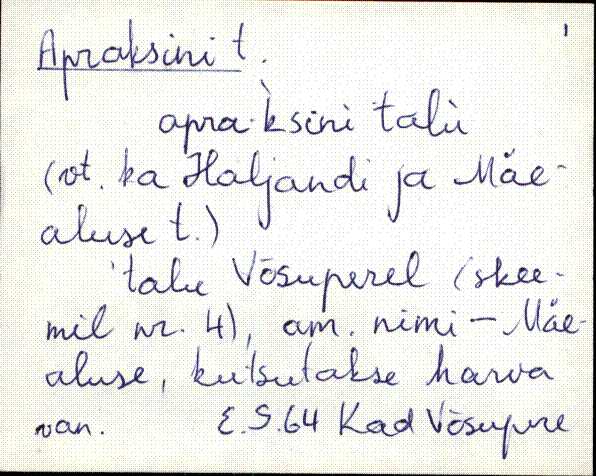 Apraksini t.
apra·k̀sini talù
(vt. ka Haljandi ja Mäe-
aluse t.)
talu Võsuperel (skee-
mil nr. 4), am. nimi - Mäe-
aluse, kutsutakse harva
van. E.S.64 Kad Võsupere